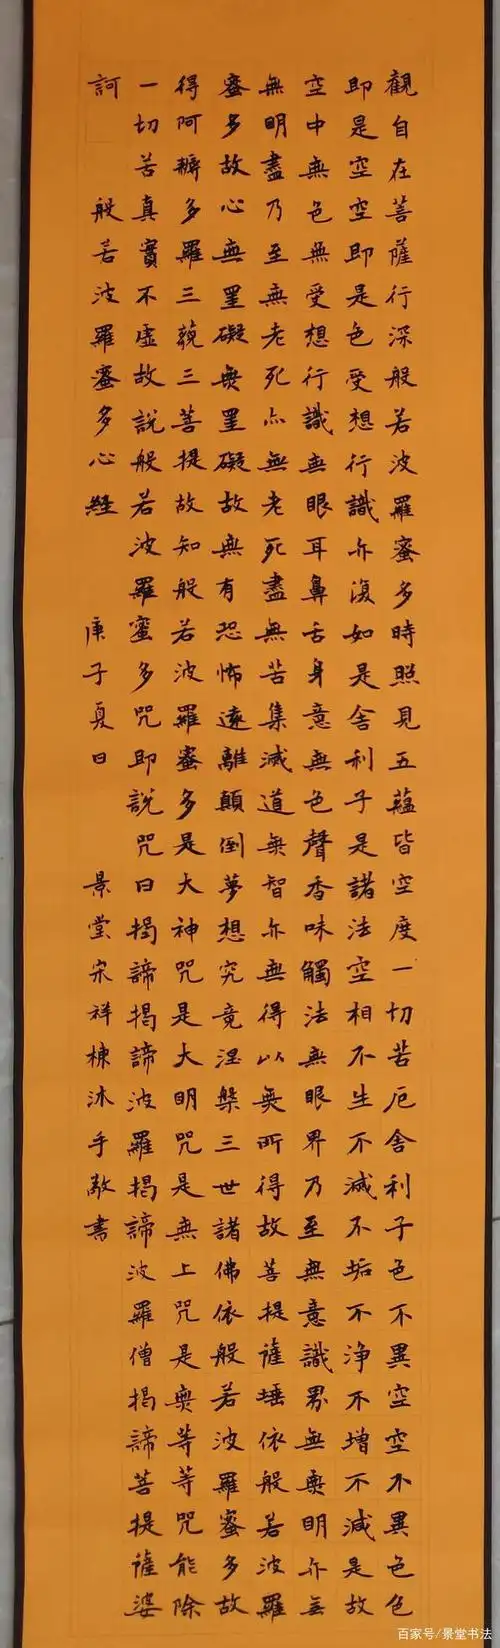 觀自在菩薩行深般若波羅蜜多時照見五蘊皆空度一切苦厄舍利子色不異空空不異色色
即是空空即是色受想行識亦復如是舍利子是諸法空相不生不滅不垢不浄不增不減是故
空中無色無受想行識無眼耳鼻舌身意無色聲香味觸法無眼界乃至無意識界無無明亦無
無明盡乃至無老死亦無老死盡無苦集滅道無智亦無得以無所得故菩提薩埵依般若波羅
蜜多故心無罣礙無罣礙故無有恐怖遠離顛倒夢想究竟涅槃三世諸佛依般若波羅蜜多故
得阿耨多羅三藐三菩提故知般若波羅蜜多是大神咒是大明咒是無上咒是無等等咒能除
一切苦真實不虛故說般若波羅蜜多咒即說咒曰揭諦揭諦波羅揭諦波羅僧揭諦菩提薩婆
訶 般若波羅蜜多心經 庚子夏日 景堂宋祥棟沐手敬書
百家号/景堂书法